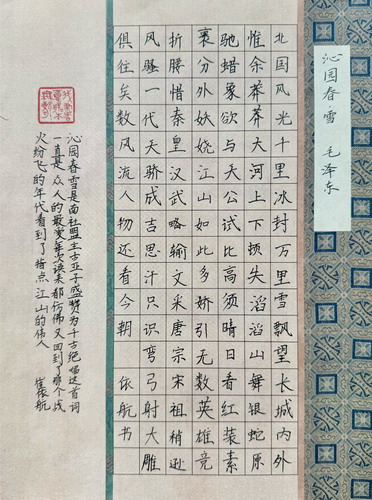 沁园春·雪 毛泽东
北国风光千里冰封万里雪飘望长城内外
惟余莽莽大河上下顿失滔滔山舞银蛇原
驰蜡象欲与天公试比高须晴日看红装素
裹分外妖娆江山如此多娇引无数英雄竞
折腰惜秦皇汉武略输文采唐宗宋祖稍逊
风骚一代天骄成吉思汗只识弯弓射大雕
俱往矣数风流人物还看今朝 依航书
沁园春雪是南社盟主古亚子盛赞为千古绝唱这首词
一直是众人的最爱每次读来都仿佛又回到了那个战
火纷飞的年代看到了指点江山的伟人 崔依航